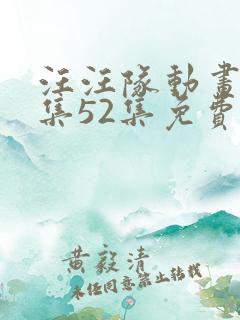 汪汪隊動畫
集52集免費
黃毅清
未经同意禁止转载